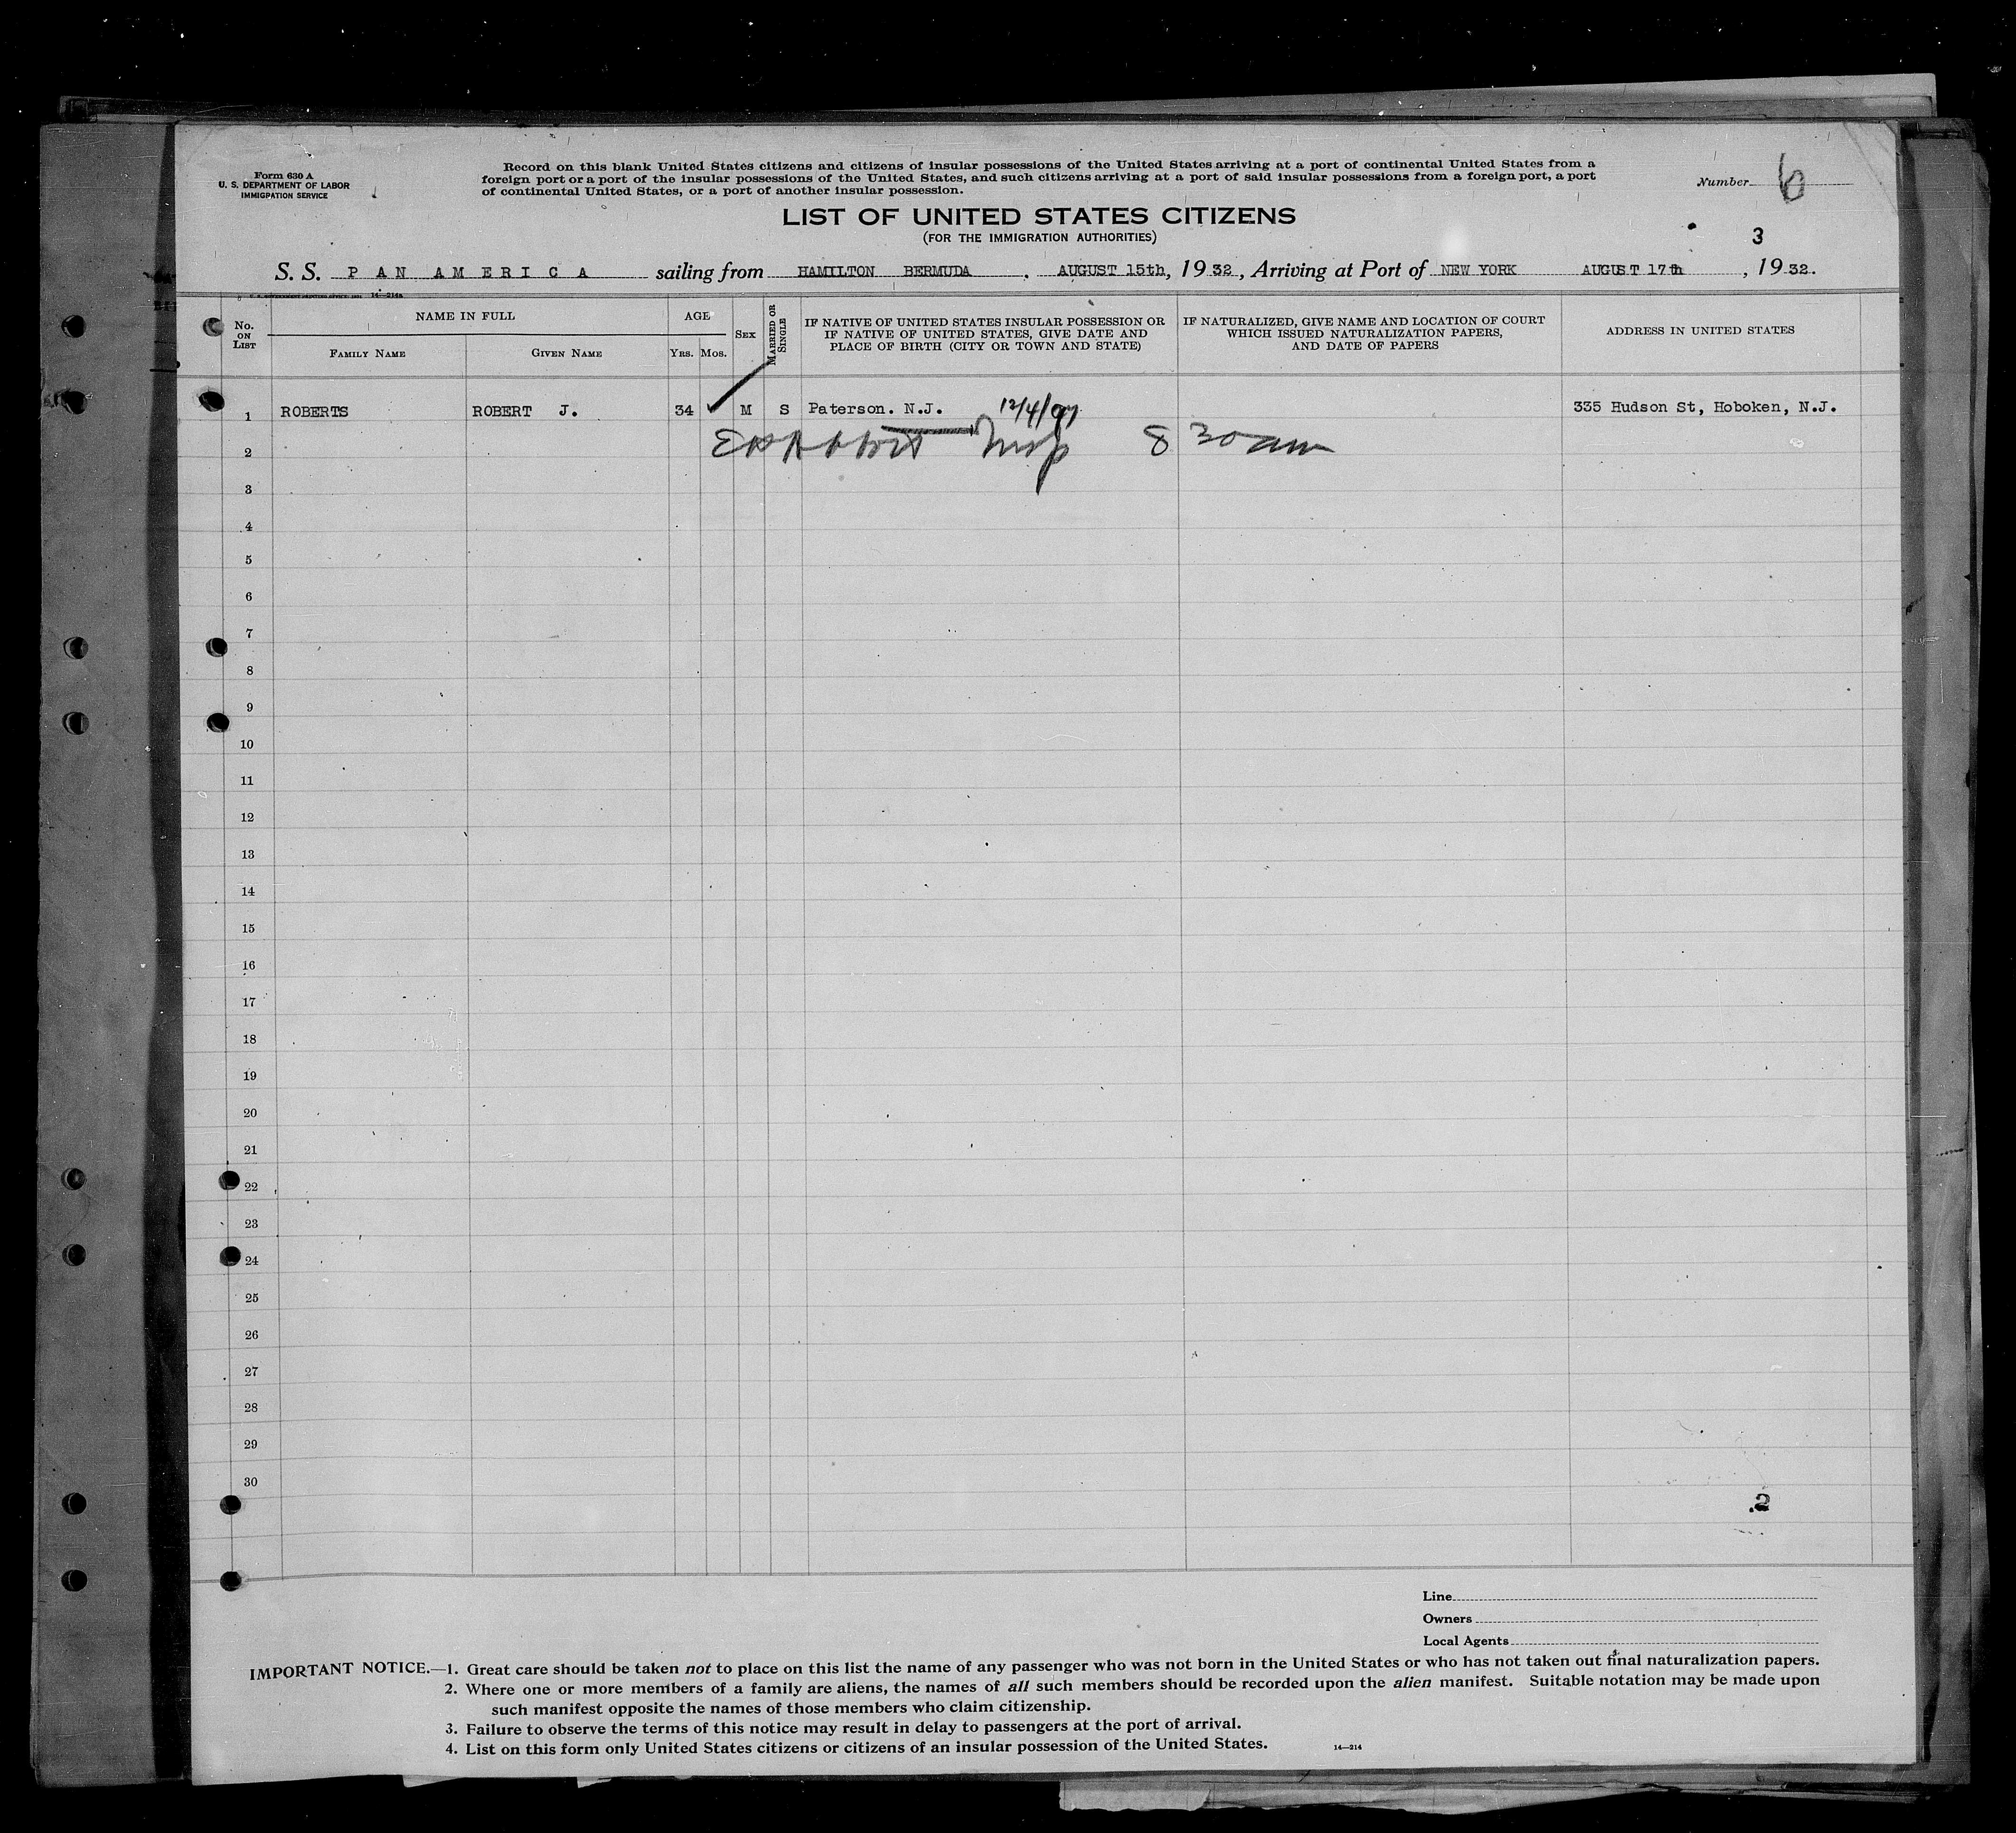 Form 630 A
U. S. DEPARTMENT OF LABOR
IMMIGRATION SERVICE
Record on this blank United States citizens and citizens of insular possessions of the United States arriving at a port of continental United States from a
foreign port or a port of the insular possessions of the United States, and such citizens arriving at a port of said insular possessions from a foreign port, a port
of continental United States, or a port of another insular possession.
Number 6
LIST OF UNITED STATES CITIZENS
(FOR THE IMMIGRATION AUTHORITIES)
3
S. S. PAN AMERICA sailing from HAMILTON BERMUDA. AUGUST 15th, 1932, Arriving at Port of NEW YORK AUGUST 17th, 1932.
14—214a
No. ON LIST
NAME IN FULL
FAMILY NAME
GIVEN NAME
AGE
YRS. MOS.
SEX
MARRIED OR SINGLE
IF NATIVE OF UNITED STATES INSULAR POSSESSION OR
IF NATIVE OF UNITED STATES, GIVE DATE AND
PLACE OF BIRTH (CITY OR TOWN AND STATE)
IF NATURALIZED, GIVE NAME AND LOCATION OF COURT
WHICH ISSUED NATURALIZATION PAPERS,
AND DATE OF PAPERS
ADDRESS IN UNITED STATES
1 ROBERTS ROBERT J. 34 M S Paterson. N.J. 12/4/97 335 Hudson St, Hoboken, N.J.
2 Insp 8 30 am
3
4
5
6
7
8
9
10
11
12
13
14
15
16
17
18
19
20
21
22
23
24
25
26
27
28
29
30
2
Line
Owners
Local Agents
IMPORTANT NOTICE.—1. Great care should be taken not to place on this list the name of any passenger who was not born in the United States or who has not taken out final naturalization papers.
2. Where one or more members of a family are aliens, the names of all such members should be recorded upon the alien manifest. Suitable notation may be made upon
such manifest opposite the names of those members who claim citizenship.
3. Failure to observe the terms of this notice may result in delay to passengers at the port of arrival.
4. List on this form only United States citizens or citizens of an insular possession of the United States.
14—214